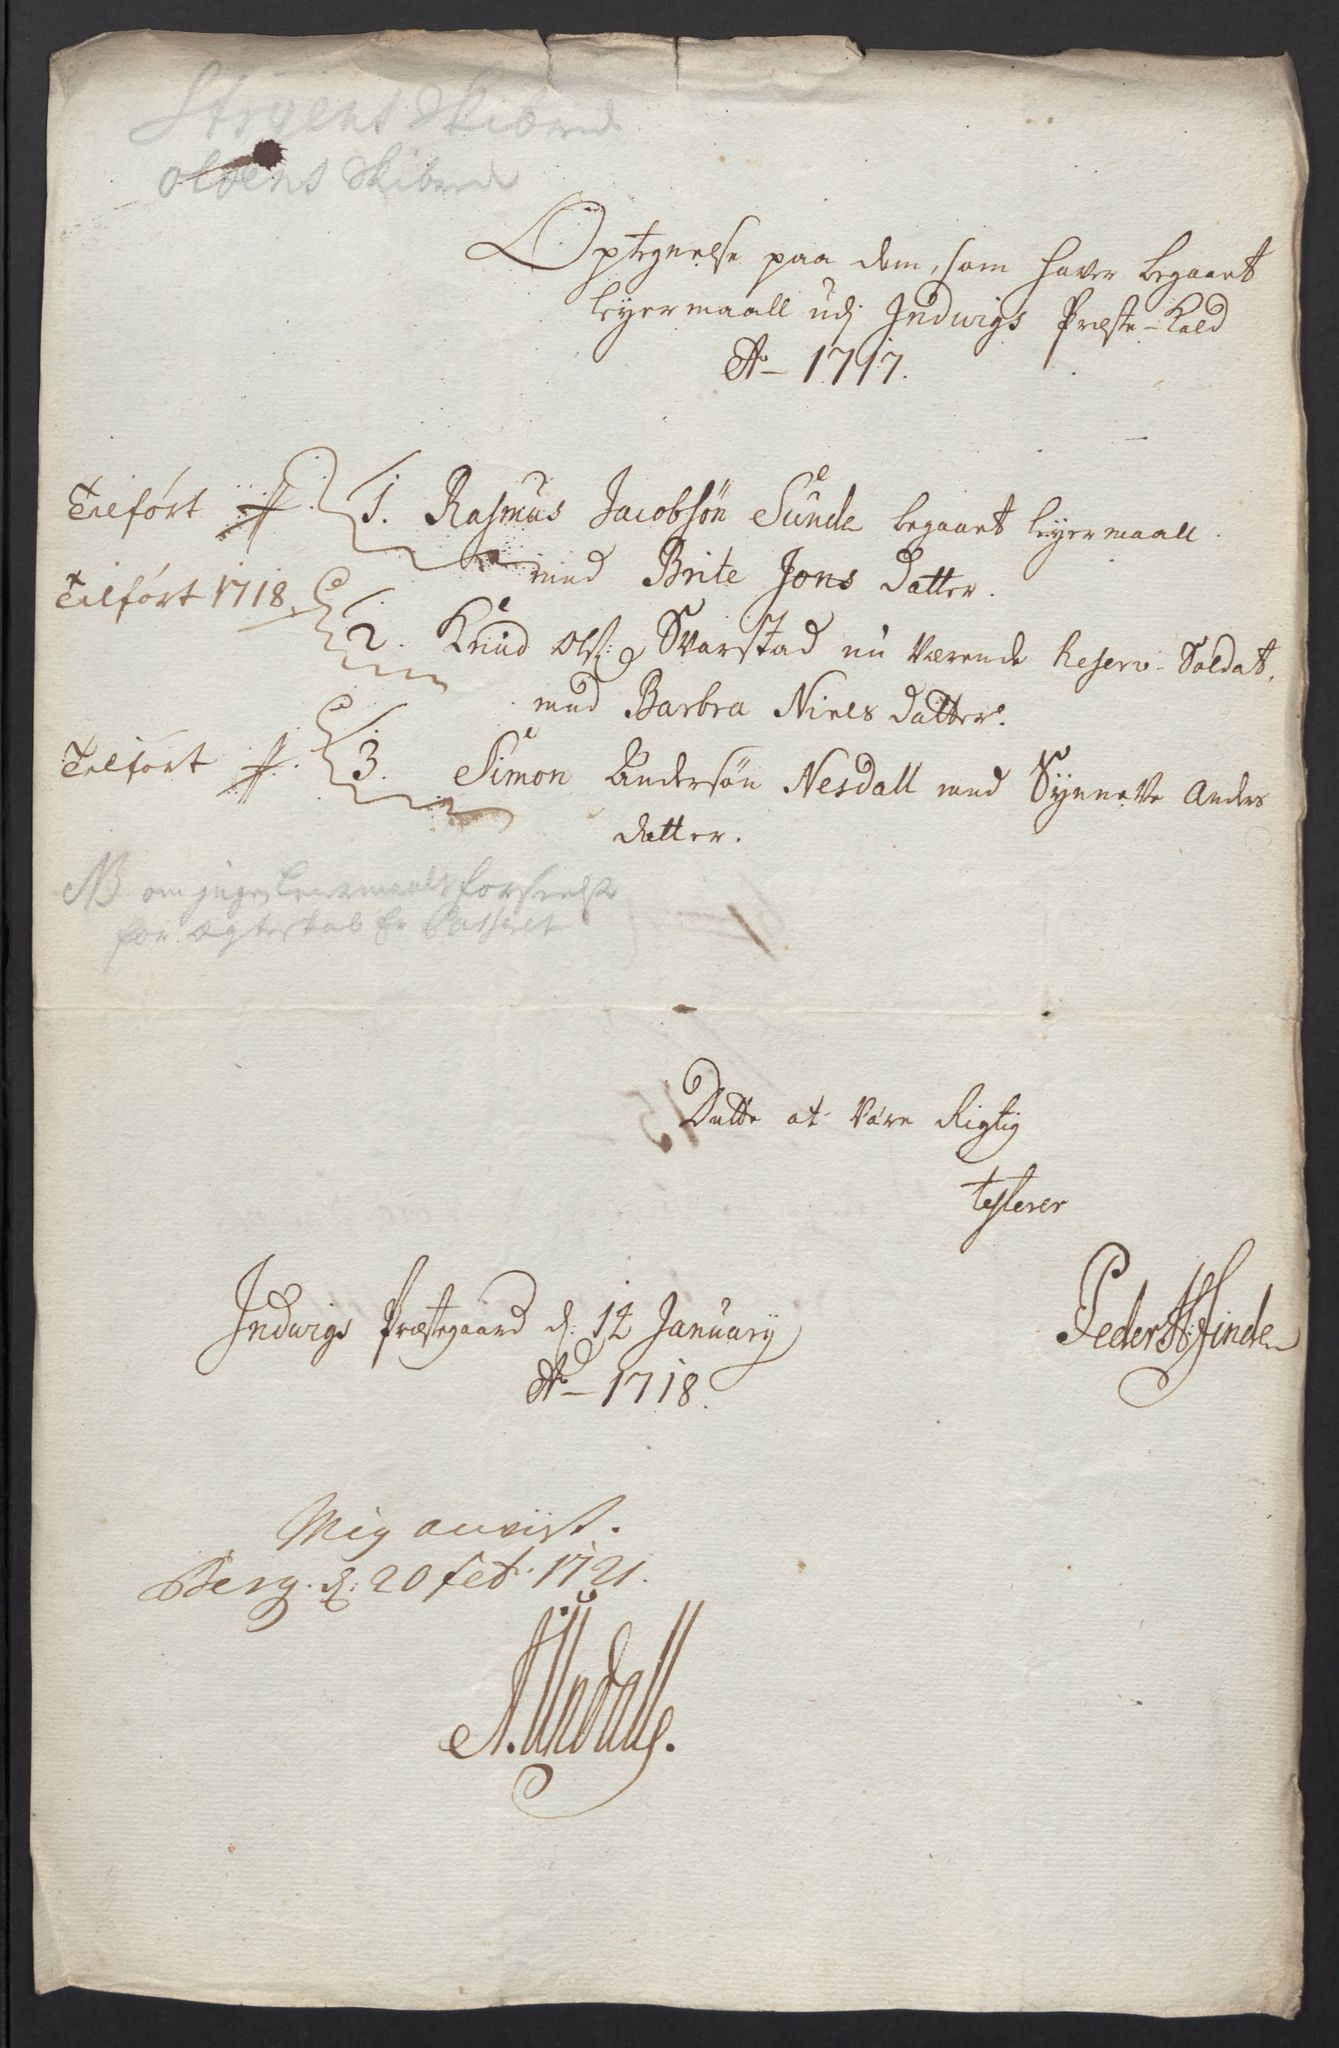 Stryens Skibred
Oldens Skibred
Optegnelse paa dem, som haver begaaet
leyermaall udj Indwigs Præste-Kald
Ao 1717.
Tilført 1. Rasmus Jacobsøn Sunde begaaet leyermaall
med Brite Jons datter.
Tilført 1718 2. Knud Ols: Svarstad nu værende Reserv-Soldat,
med Barbra Niels datter.
Tilført 3. Simon Andersøn Nesdall med Synneve Anders
datter.
NB om leiermaals forseelse
for ægteskab Er Passeret
Dette at være Rigtig
testerer
Indwigs Præstegaard d: 12 January Peder H: Finde
Ao 1718.
Mig anvist.
Berg. d: 20 feb: 1721.
A. Undall.